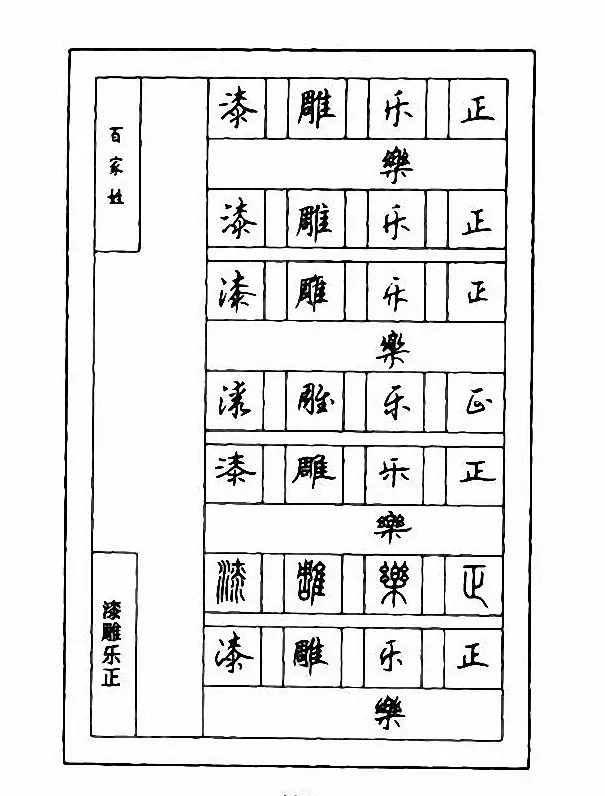 百家姓
漆雕乐正
漆 雕 乐 正
樂
漆 雕 乐 正
漆 雕 乐 正
樂
漆 雕 乐 正
漆 雕 乐 正
樂
漆 雕 樂 正
漆 雕 乐 正
樂